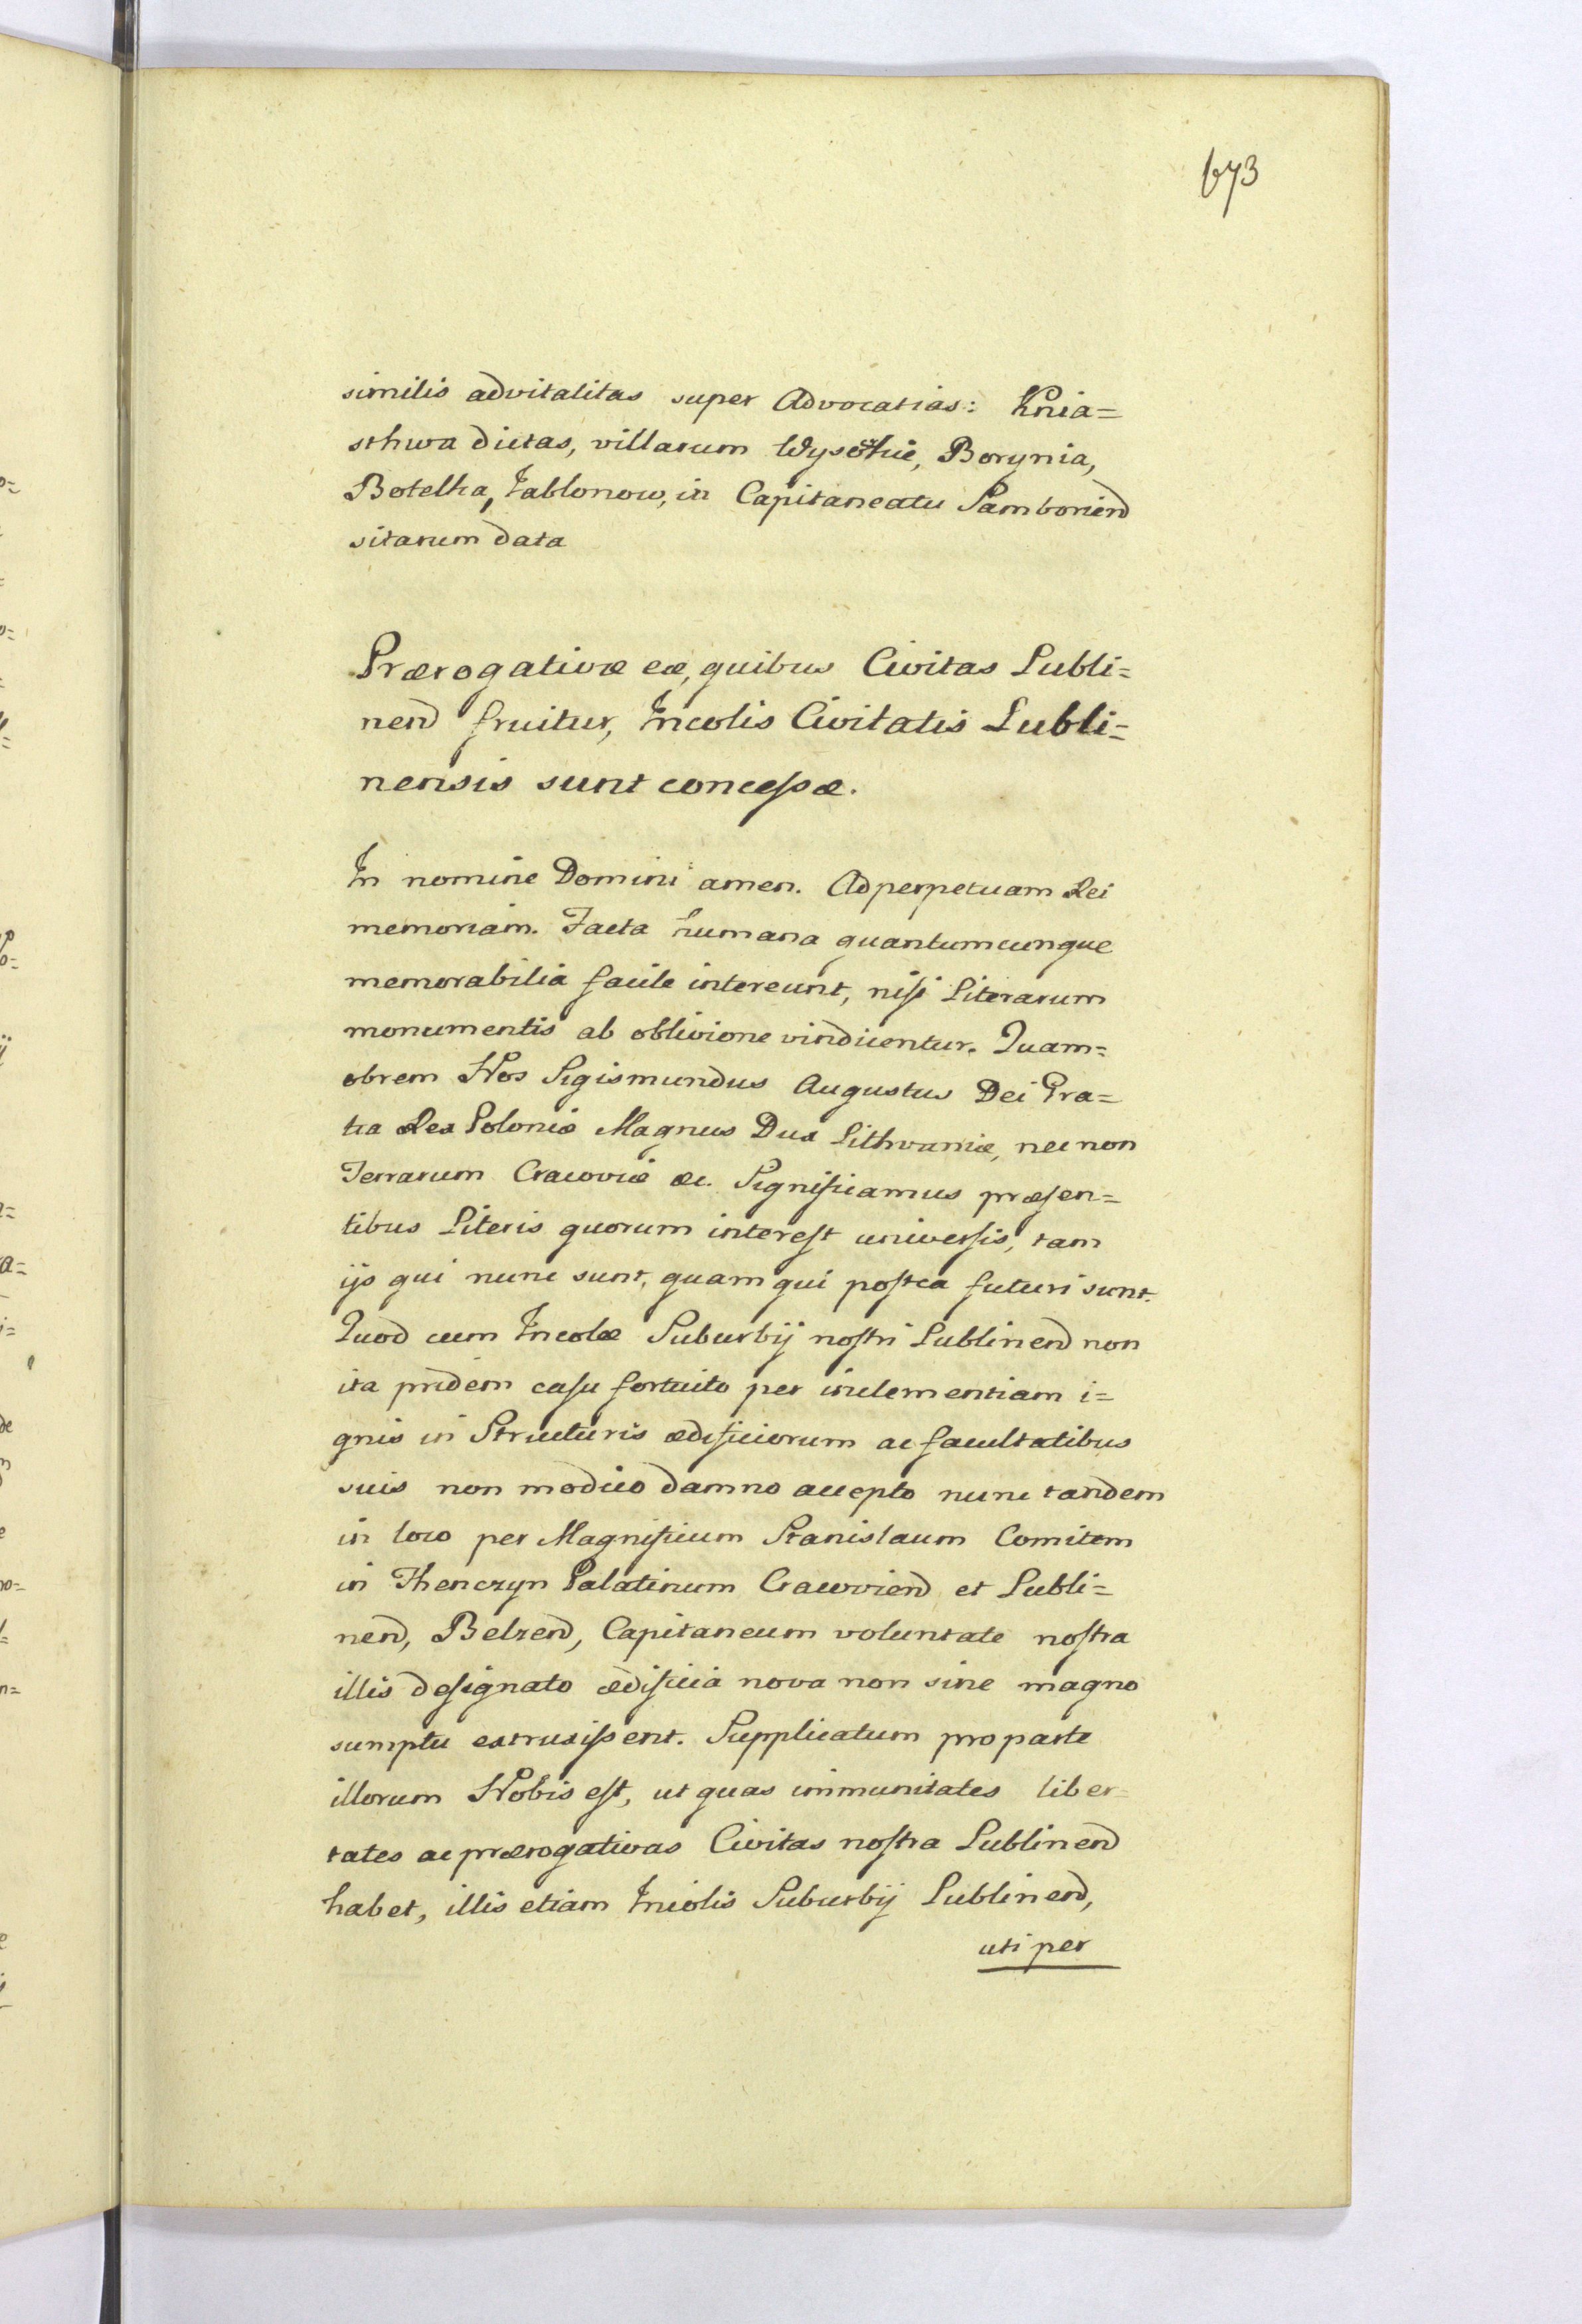 673
similis advitalitas super Advocatias: Knia=
sthwa dictas, villarum Wysothie, Borynia,
Botelka, Jablonow, in Capitaneatu Samboriend
sitarum data
Prærogativæ eæ, quibus Civitas Lubli=
nend fruitur, Incolis Civitatis Lubli=
nensis sunt concessæ.
In nomine Domini amen. Ad perpetuam Rei
memoriam. Facta humana quantumcunque
memorabilia facile intereunt, nisi Literarum
monumentis ab oblivione vindicentur. Quam=
obrem Nos Sigismundus Augustus Dei Gra=
tia Rex Poloniæ Magnus Dux Lithvaniæ, nec non
Terrarum Cracoviæ &c. Significamus præsen=
tibus Literis quorum interest universis, tam
ijs qui nunc sunt, quam qui postea futuri sunt.
Quod cum Incolæ Suburbij nostri Lublinend non
ita pridem casu fortuito per inclementiam i=
gnis in Structuris ædificiorum ac facultatibus
suis non modico damno accepto nunc tandem
in loco per Magnificum Stanislaum Comitem
in Thenczyn Palatinum Cracoviend et Lubli=
nend, Belzend, Capitaneum voluntate nostra
illis designato ædificia nova non sine magno
sumptu extruxissent. Supplicatum pro parte
illorum Nobis est, ut quas immunitates liber=
tates ac prærogativas Civitas nostra Lublinend
habet, illis etiam Incolis Suburbij Lublinend,
uti per